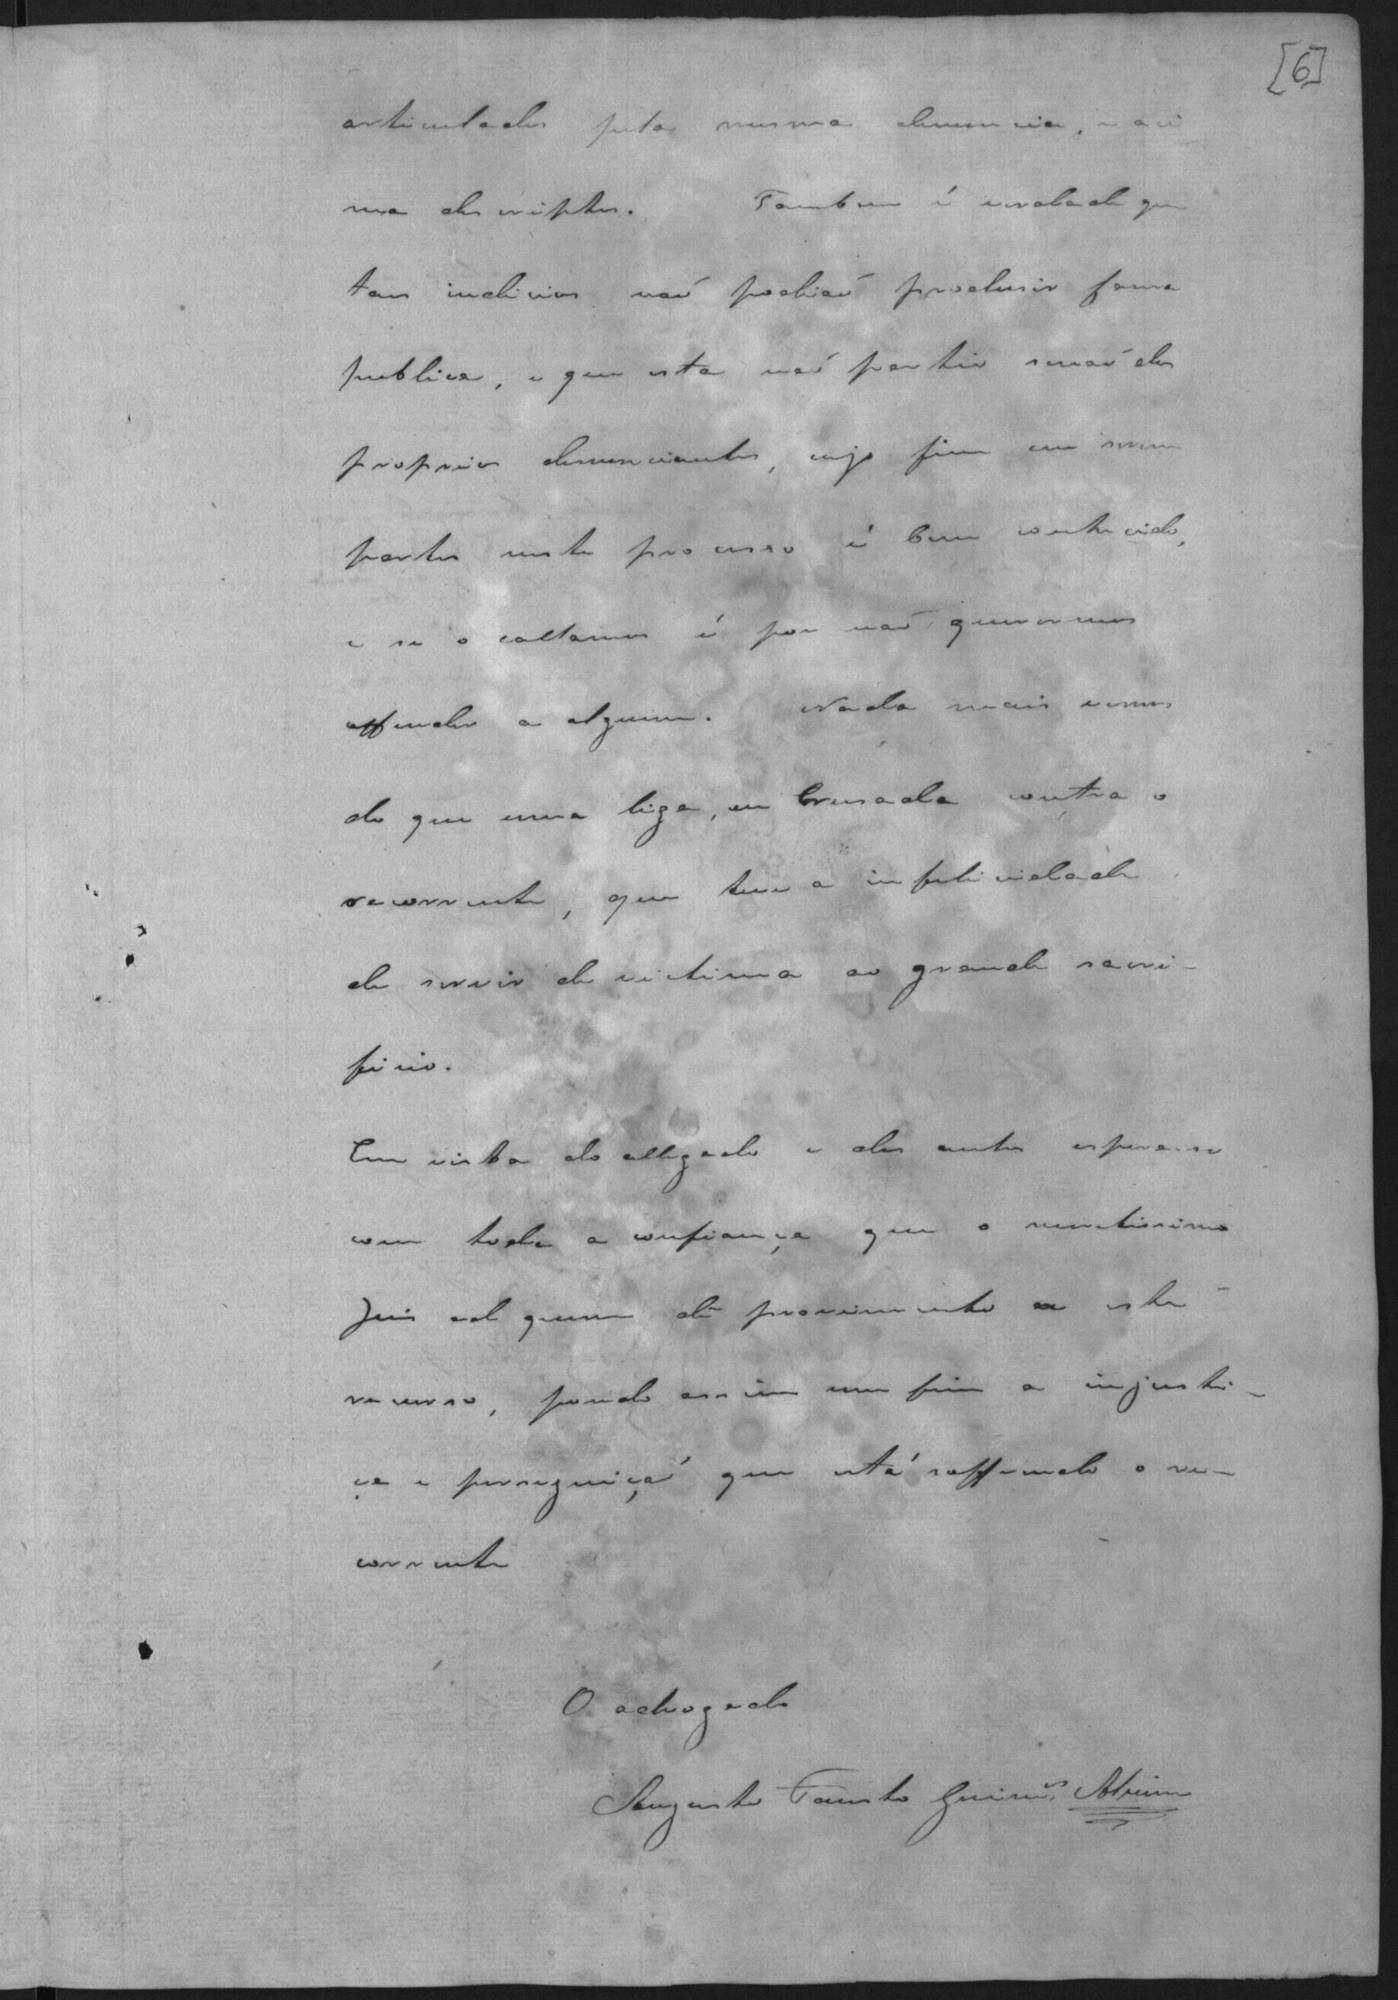 [6]
articulados pela mesma denuncia, e aci
ma descriptos. Tambem é verdade que
taes indicios naó podiaó produsir fama
publica, e que esta naó partio senaó dos
proprios denunciantes, cujo fim em serem
partes neste processo é bem conhecido,
e se o callamos é por naó querermos
offender a alguem. Nada mais vemos
do que uma liga, ou Crusada contra o
recorrente, que teve a infelicidade
de servir de victima ao grande sacri-
ficio.
Em vista do allegado e dos autos espera-se
com toda a confiança que o merétissimo
Juis ad quem dê provimento a este
recurso, pondo assim um fim a injusti-
ça e perseguiçaó que está soffrendo o re-
corrente
O advogado
Augusto Fausto Guim.es